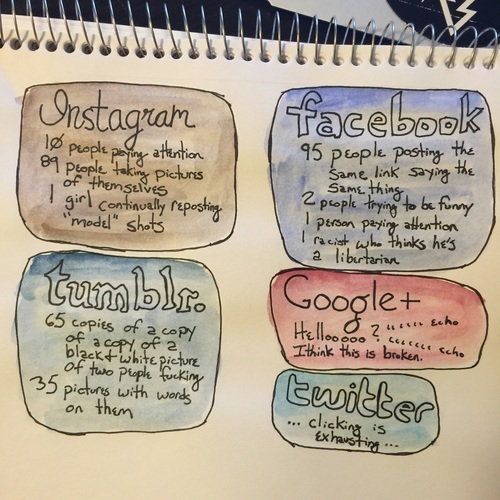 Instagram
10 people paying attention
89 people taking pictures
of themselves
1 girl continually reposting
"model" shots
facebook
95 people posting the
same link saying the
same thing
2 people trying to be funny
1 person paying attention
1 racist who thinks he's
a libertarian
tumblr.
65 copies of a copy
of a copy of a
black + white picture
of two people fucking
35 pictures with words
on them
Google+
Hellooooo? echo
echo
I think this is broken.
twitter
... clicking is
exhausting ...